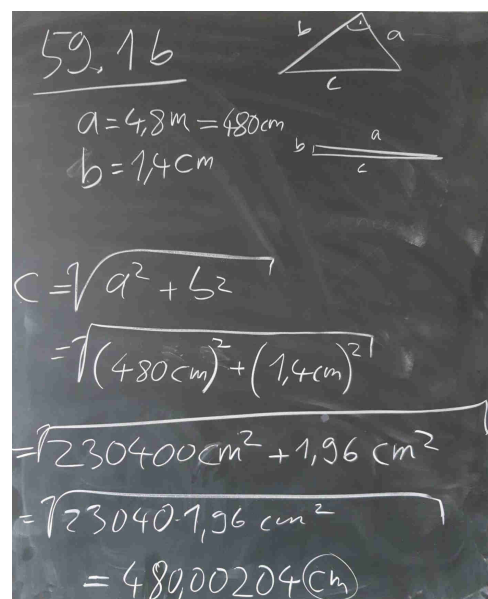 59.1b
b a
c
a = 4,8m = 480cm
b = 1,4cm
a
b
c
c = √(a² + b²)
= √((480cm)² + (1,4cm)²)
= √(230400cm² + 1,96 cm²)
= √(23040·1,96 cm²)
= 480,00204 cm